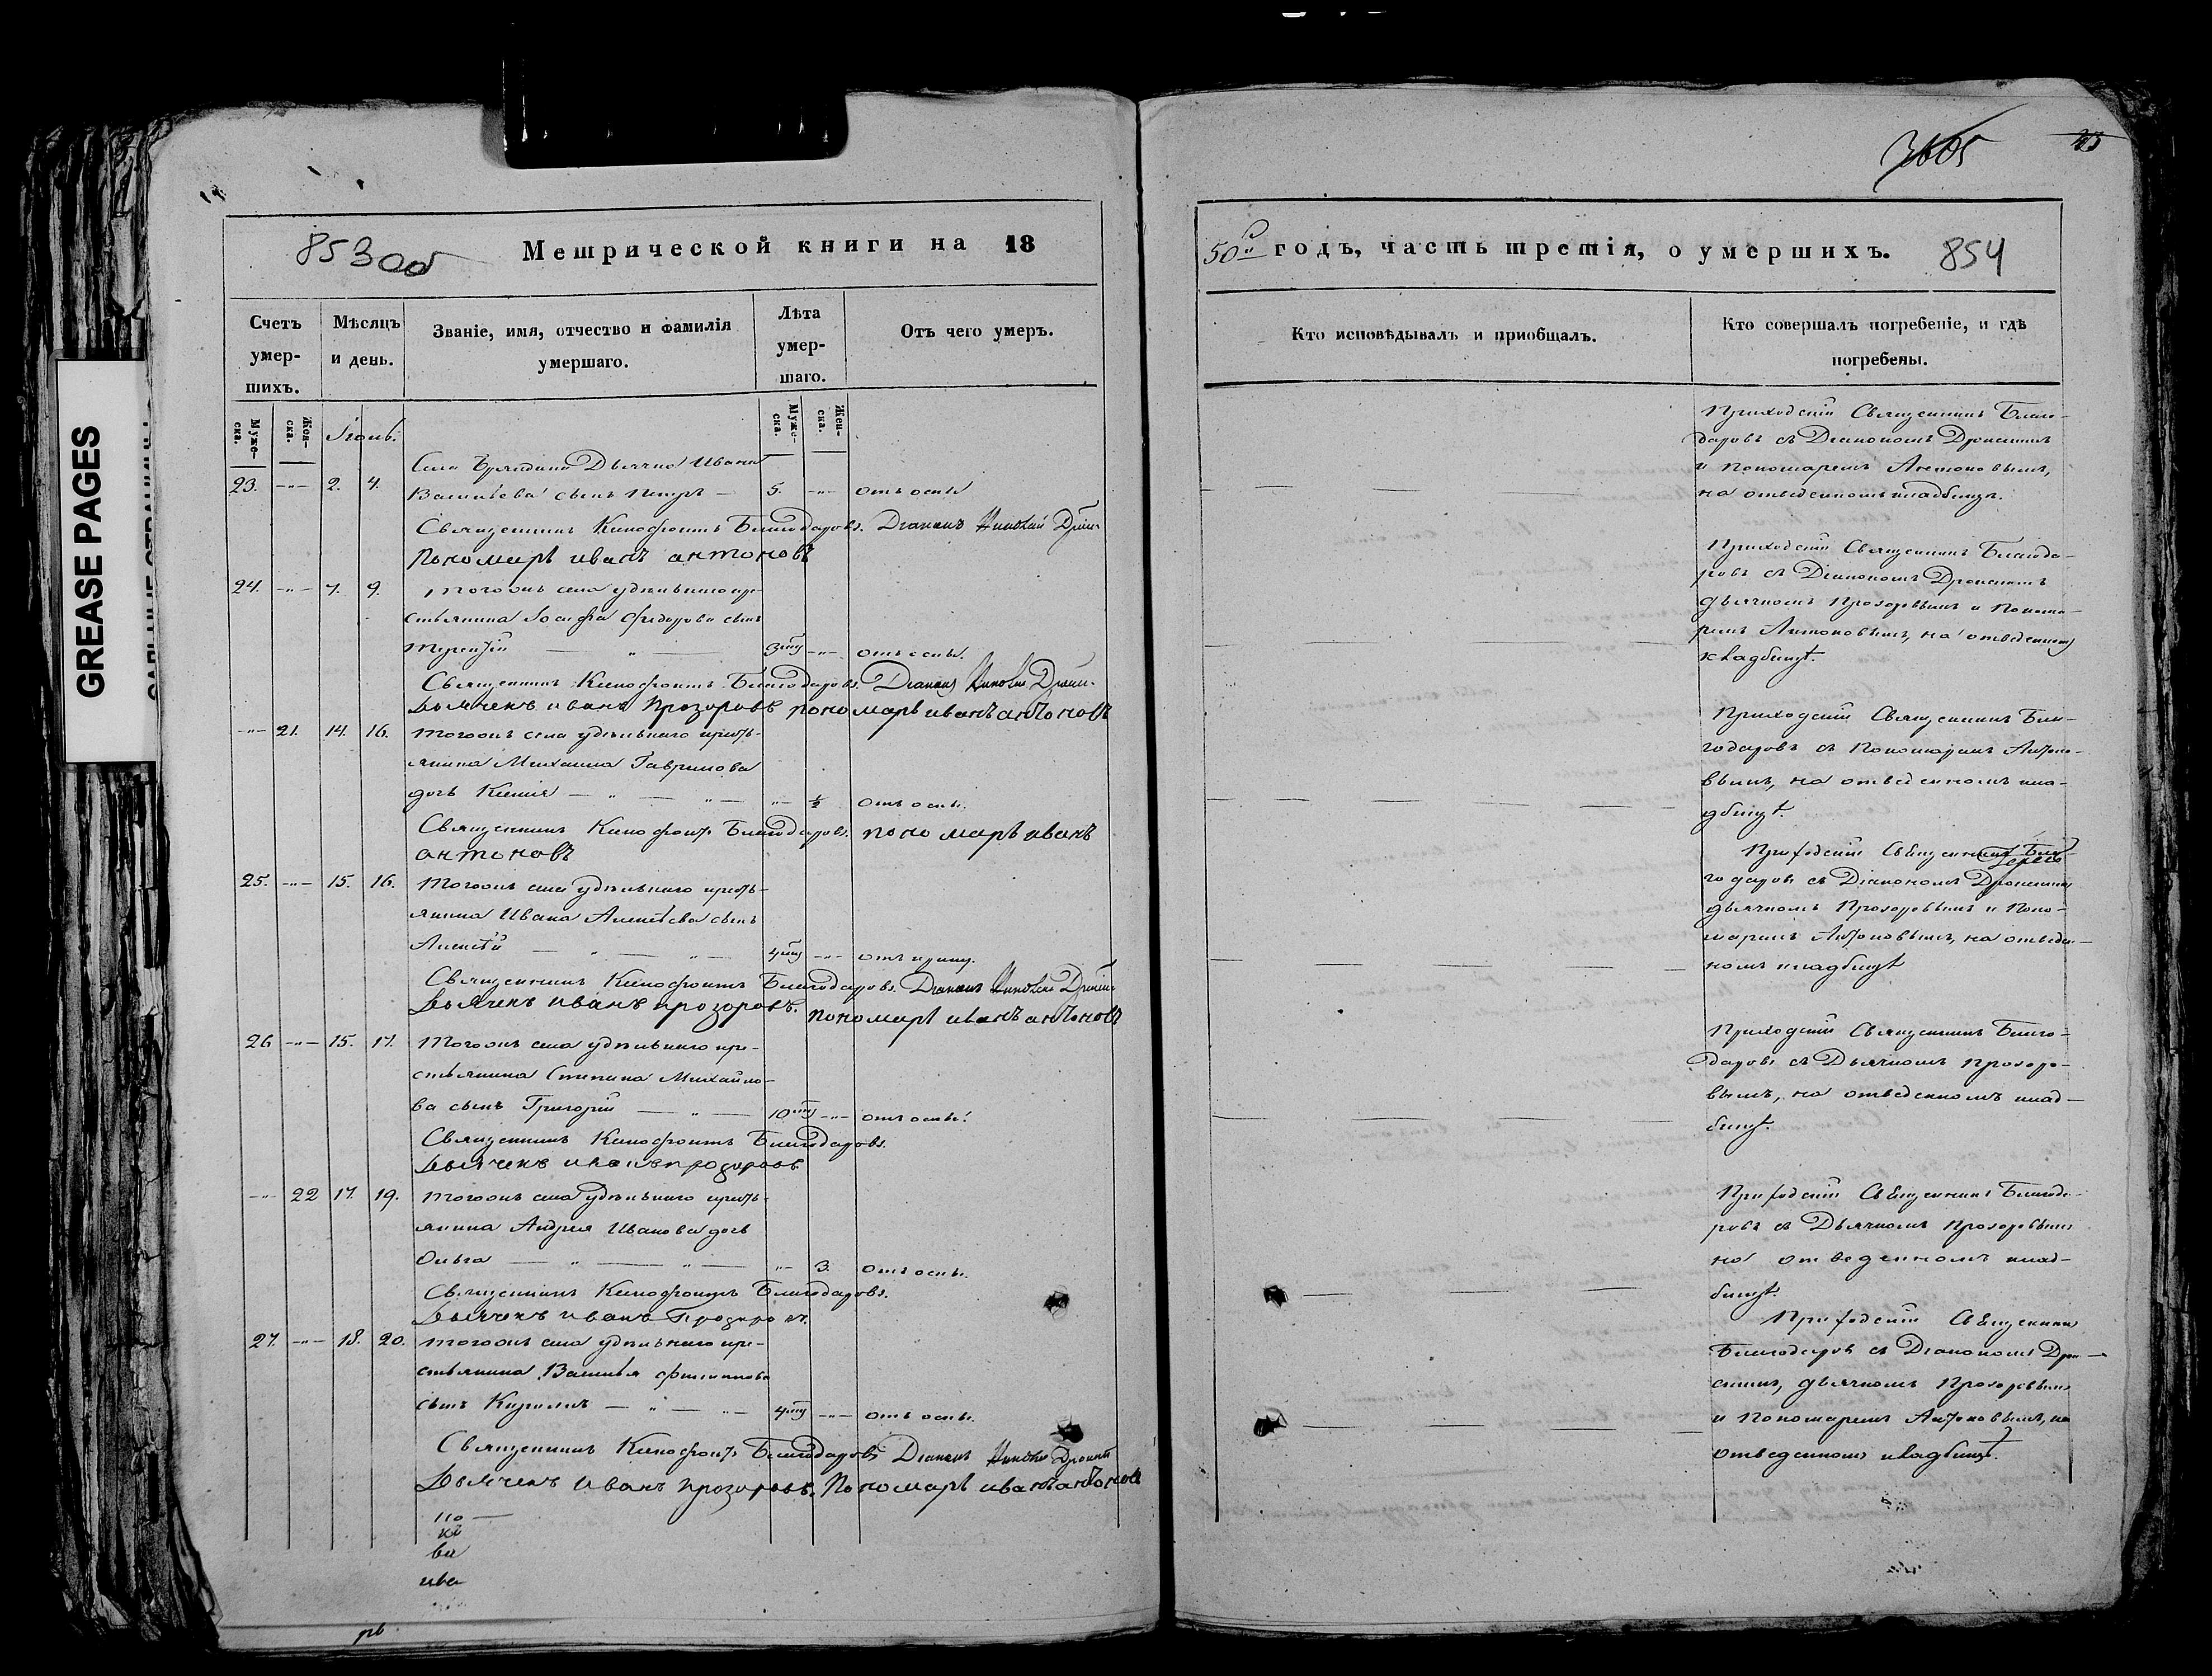 GREASE PAGES
853об
Метрической книги на 18
Счетъ умер-шихъ.
Мѣсяцъ и день.
Званіе, имя, отчество и фамилія умершаго.
Лѣта умер-шаго.
Отъ чего умеръ.
Муже-ска.
Жен-ска.
Іюнь.
Муже-ска.
Жен-ска.
Села Дьячка Ивана
23. -„- 2. 4. Васильева сынъ Петръ — 5. -„- отъ оспы
Священникъ Ксенофонтъ Благодаровъ. Діаконъ Николай
Пономарь иванъ антоновъ
24. -„- 7. 9. Тогоожъ села удѣльнаго кре-
стьянина Іосифа Федорова сынъ
Терентій — „ — -„- отъ оспы.
Священникъ Ксенофонтъ Благодаровъ. Діаконъ Николай
Дьячекъ иванъ Прозоровъ пономарь иванъ антоновъ
-„- 21. 14. 16. Тогоожъ села удѣльнаго кресть-
янина Михаила Гаврилова
дочь Ксенія — „ — „ — -„- ½ отъ оспы.
Священникъ Ксенофонтъ Благодаровъ. пономарь иванъ
антоновъ
25. -„- 15. 16. Тогоожъ села удѣльнаго кресть-
янина Ивана Алексѣева сынъ
Алексѣй — „ — „ — -„- отъ
Священникъ Ксенофонтъ Благодаровъ. Діаконъ Николай
Дьячекъ иванъ прозоровъ. пономарь иванъ антоновъ
26 -„- 15. 17. Тогоожъ села удѣльнаго кре-
стьянина Степана Михайло-
ва сынъ Григорій — „ — -„- отъ оспы.
Священникъ Ксенофонтъ Благодаровъ.
Дьячекъ иванъ прозоровъ
-„- 22 17. 19. Тогоожъ села удѣльнаго кресть-
янина Андрея Иванова дочь
Ольга — „ — „ — -„- 3. отъ оспы.
Священникъ Ксенофонтъ Благодаровъ.
Дьячекъ иванъ Прозоровъ.
27. -„- 18. 20. Тогоожъ села удѣльнаго кре-
стьянина Василья Филиппова
сынъ Кириллъ — „ — „ — -„- отъ оспы.
Священникъ Ксенофонтъ Благодаровъ Діаконъ Николай
Дьячекъ иванъ прозоровъ. Пономарь иванъ антоновъ
но —
ва
ива
50й годъ, часть третія, о умершихъ.
854
Кто исповѣдывалъ и приобщалъ.
Кто совершалъ погребеніе, и гдѣ погребены.
Приходскій Священникъ Благо-
даровъ съ Діакономъ
и Пономаремъ Антоновымъ,
на отведенномъ кладбищѣ.
Приходскій Священникъ Благода-
ровъ съ Діакономъ
дьячкомъ Прозоровымъ и Понома-
ремъ Антоновымъ, на отведенномъ
кладбищѣ.
Приходскій Священникъ Бла-
годаровъ съ Пономаремъ Антоно-
вымъ, на отведенномъ кла-
дбищѣ.
Приходскій Священникъ Бла-
годаровъ съ Діакономъ
дьячкомъ Прозоровымъ и Поно-
маремъ Антоновымъ, на отведен-
номъ кладбищѣ
Приходскій Священникъ Благо-
даровъ съ Дьячкомъ Прозоро-
вымъ, на отведенномъ клад-
бищѣ.
Приходскій Священникъ Благода-
ровъ съ Дьячкомъ Прозоровымъ
на отведенномъ клад-
бищѣ.
Приходскій Священникъ
Благодаровъ съ Діакономъ
дьячкомъ Прозоровымъ
и Пономаремъ Антоновымъ, на
отведенномъ кладбищѣ.